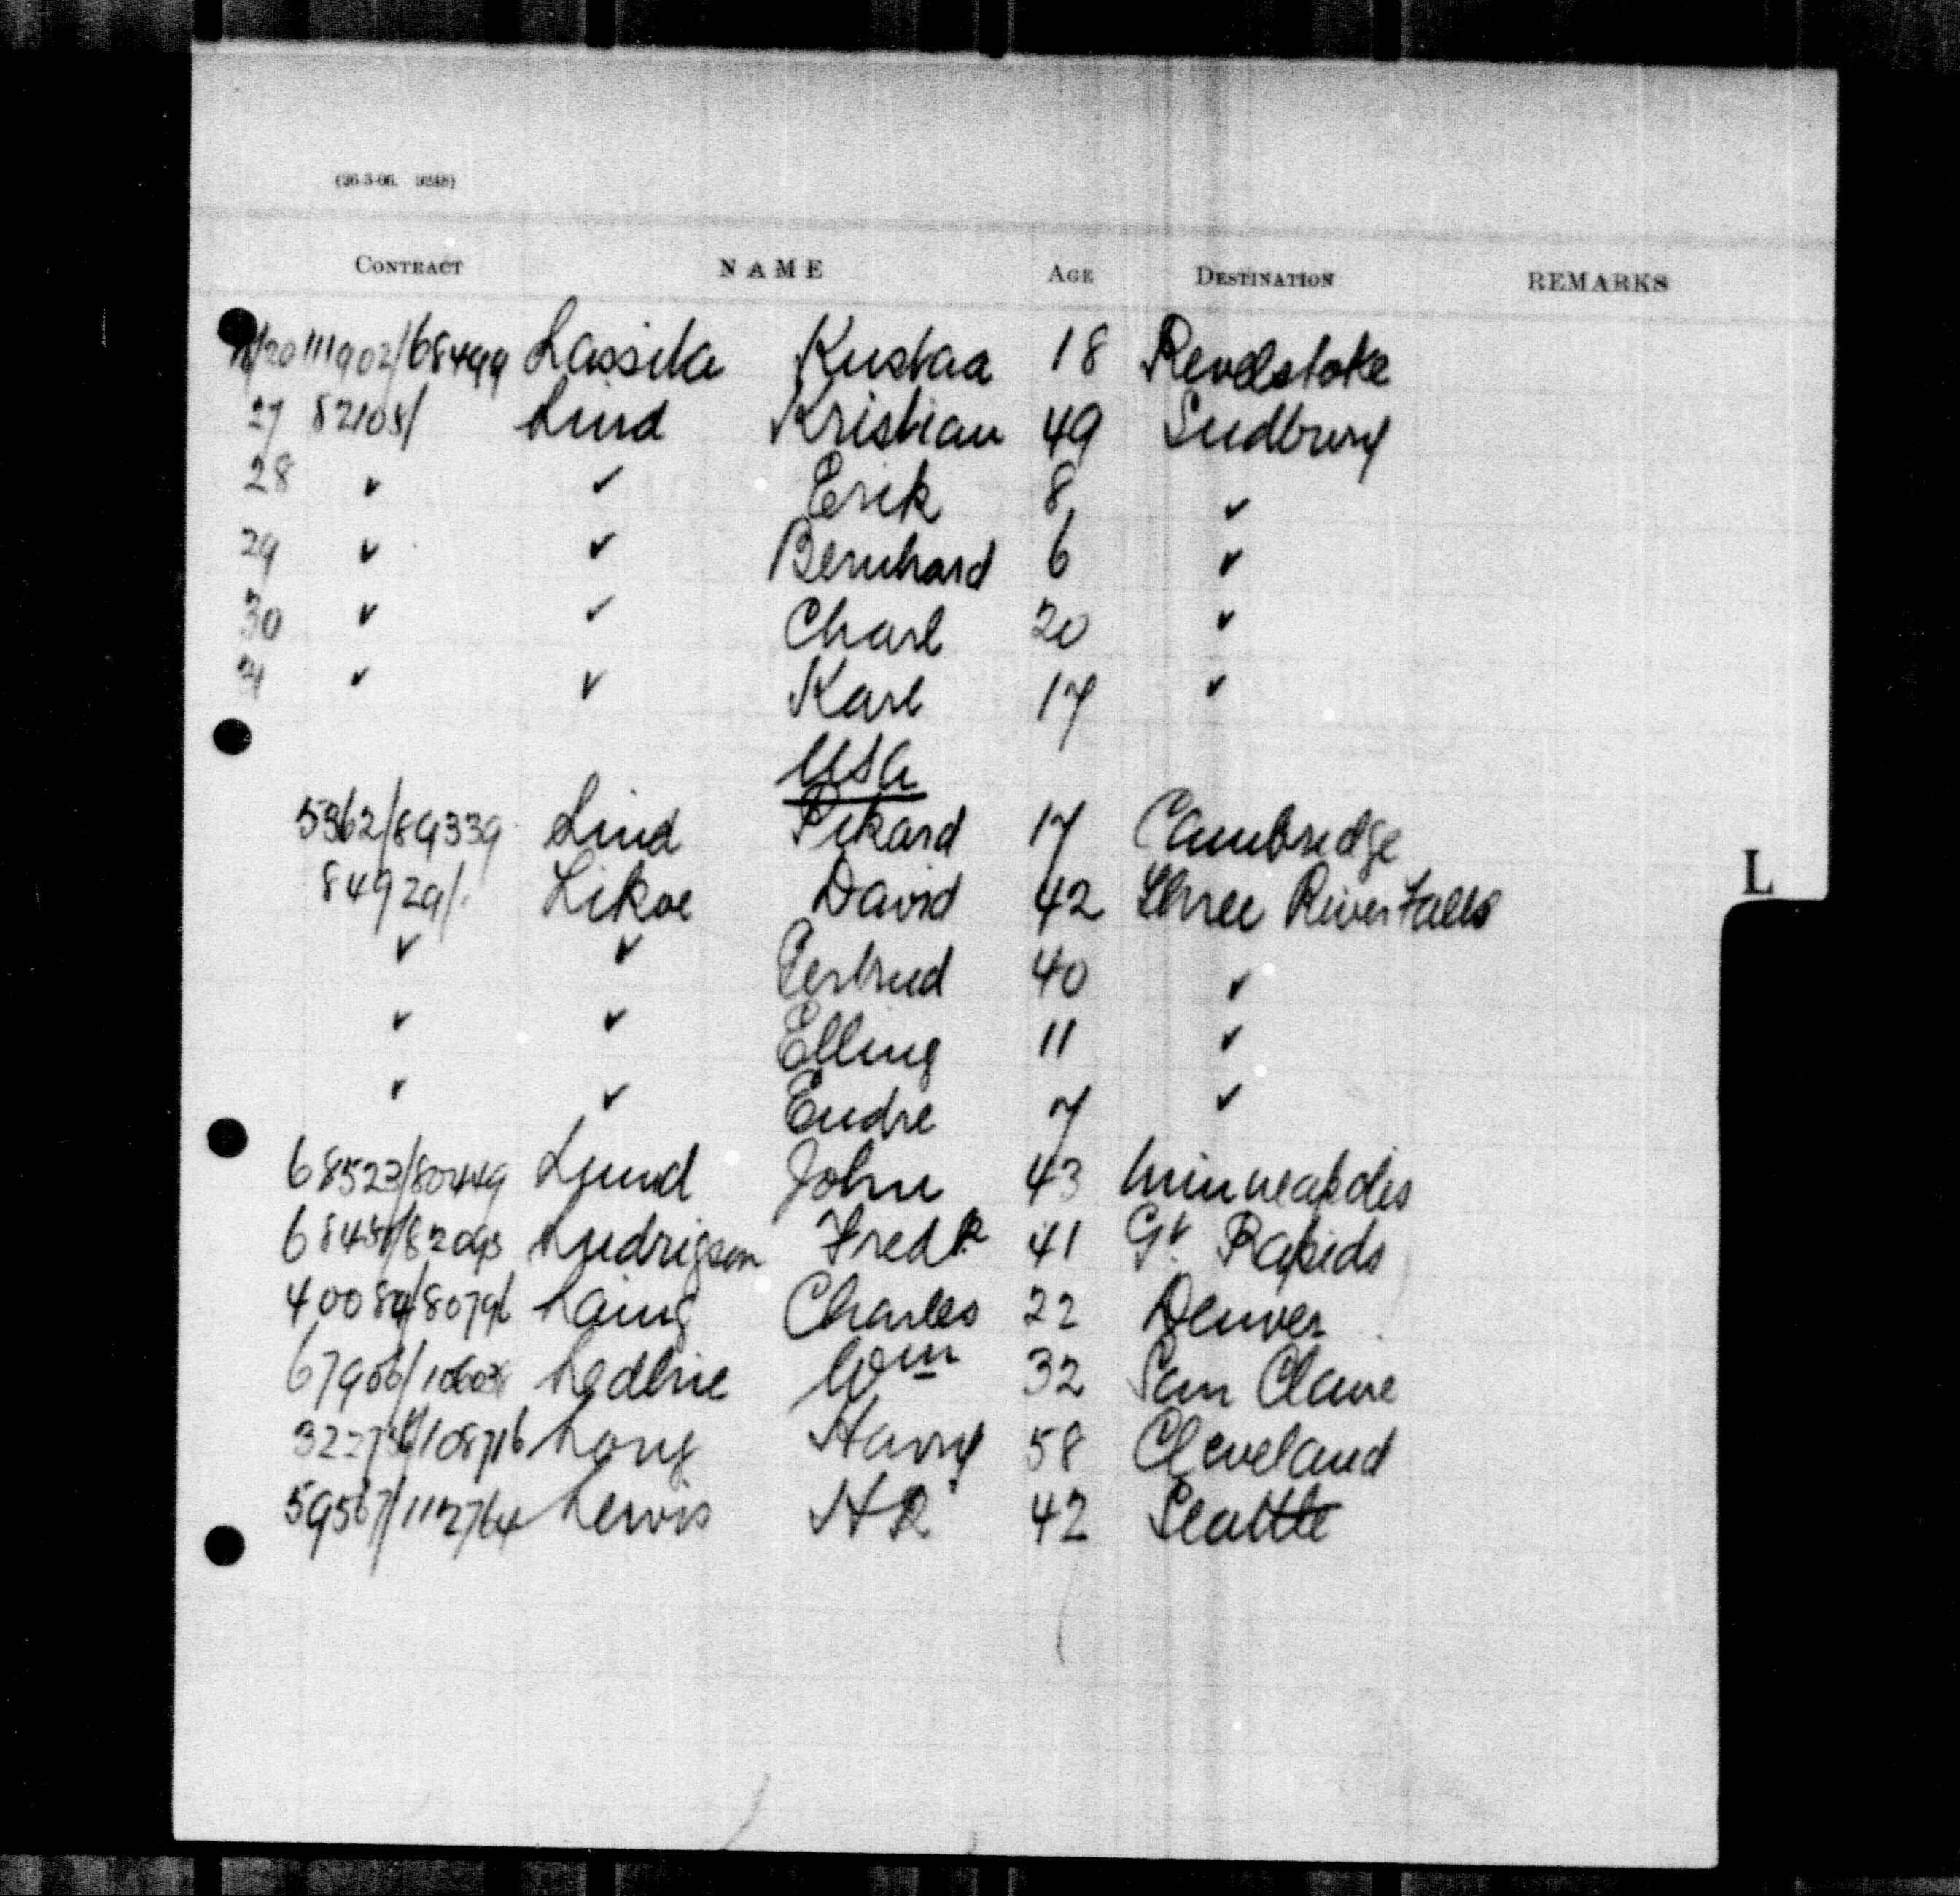 (26-3-06. 9248)
CONTRACT NAME AGE DESTINATION REMARKS
111902/68499 Lassila Kustaa 18 Revelstoke
27 82108/ Lind Kristian 49 Sudbury
28 ✓ ✓ Erik 8 ✓
29 ✓ ✓ Bernhard 6 ✓
30 ✓ ✓ Charl 20 ✓
31 ✓ ✓ Karl 17 ✓
USA
5362/89339 Lind Rikard 17 Cambridge
84929/. Likoe David 42 Three River Falls
✓ ✓ Gertrud 40 ✓
✓ ✓ Elling 11 ✓
✓ ✓ Endre 7 ✓
68523/80449 Lund John 43 Minneapolis
Ludrigson Fredk 41 Gt. Rapids
Laing Charles 22 Denver
Wm 32 Claire
Long Harry 58 Cleveland
59567/112764 Lewis HR 42 Seattle
L